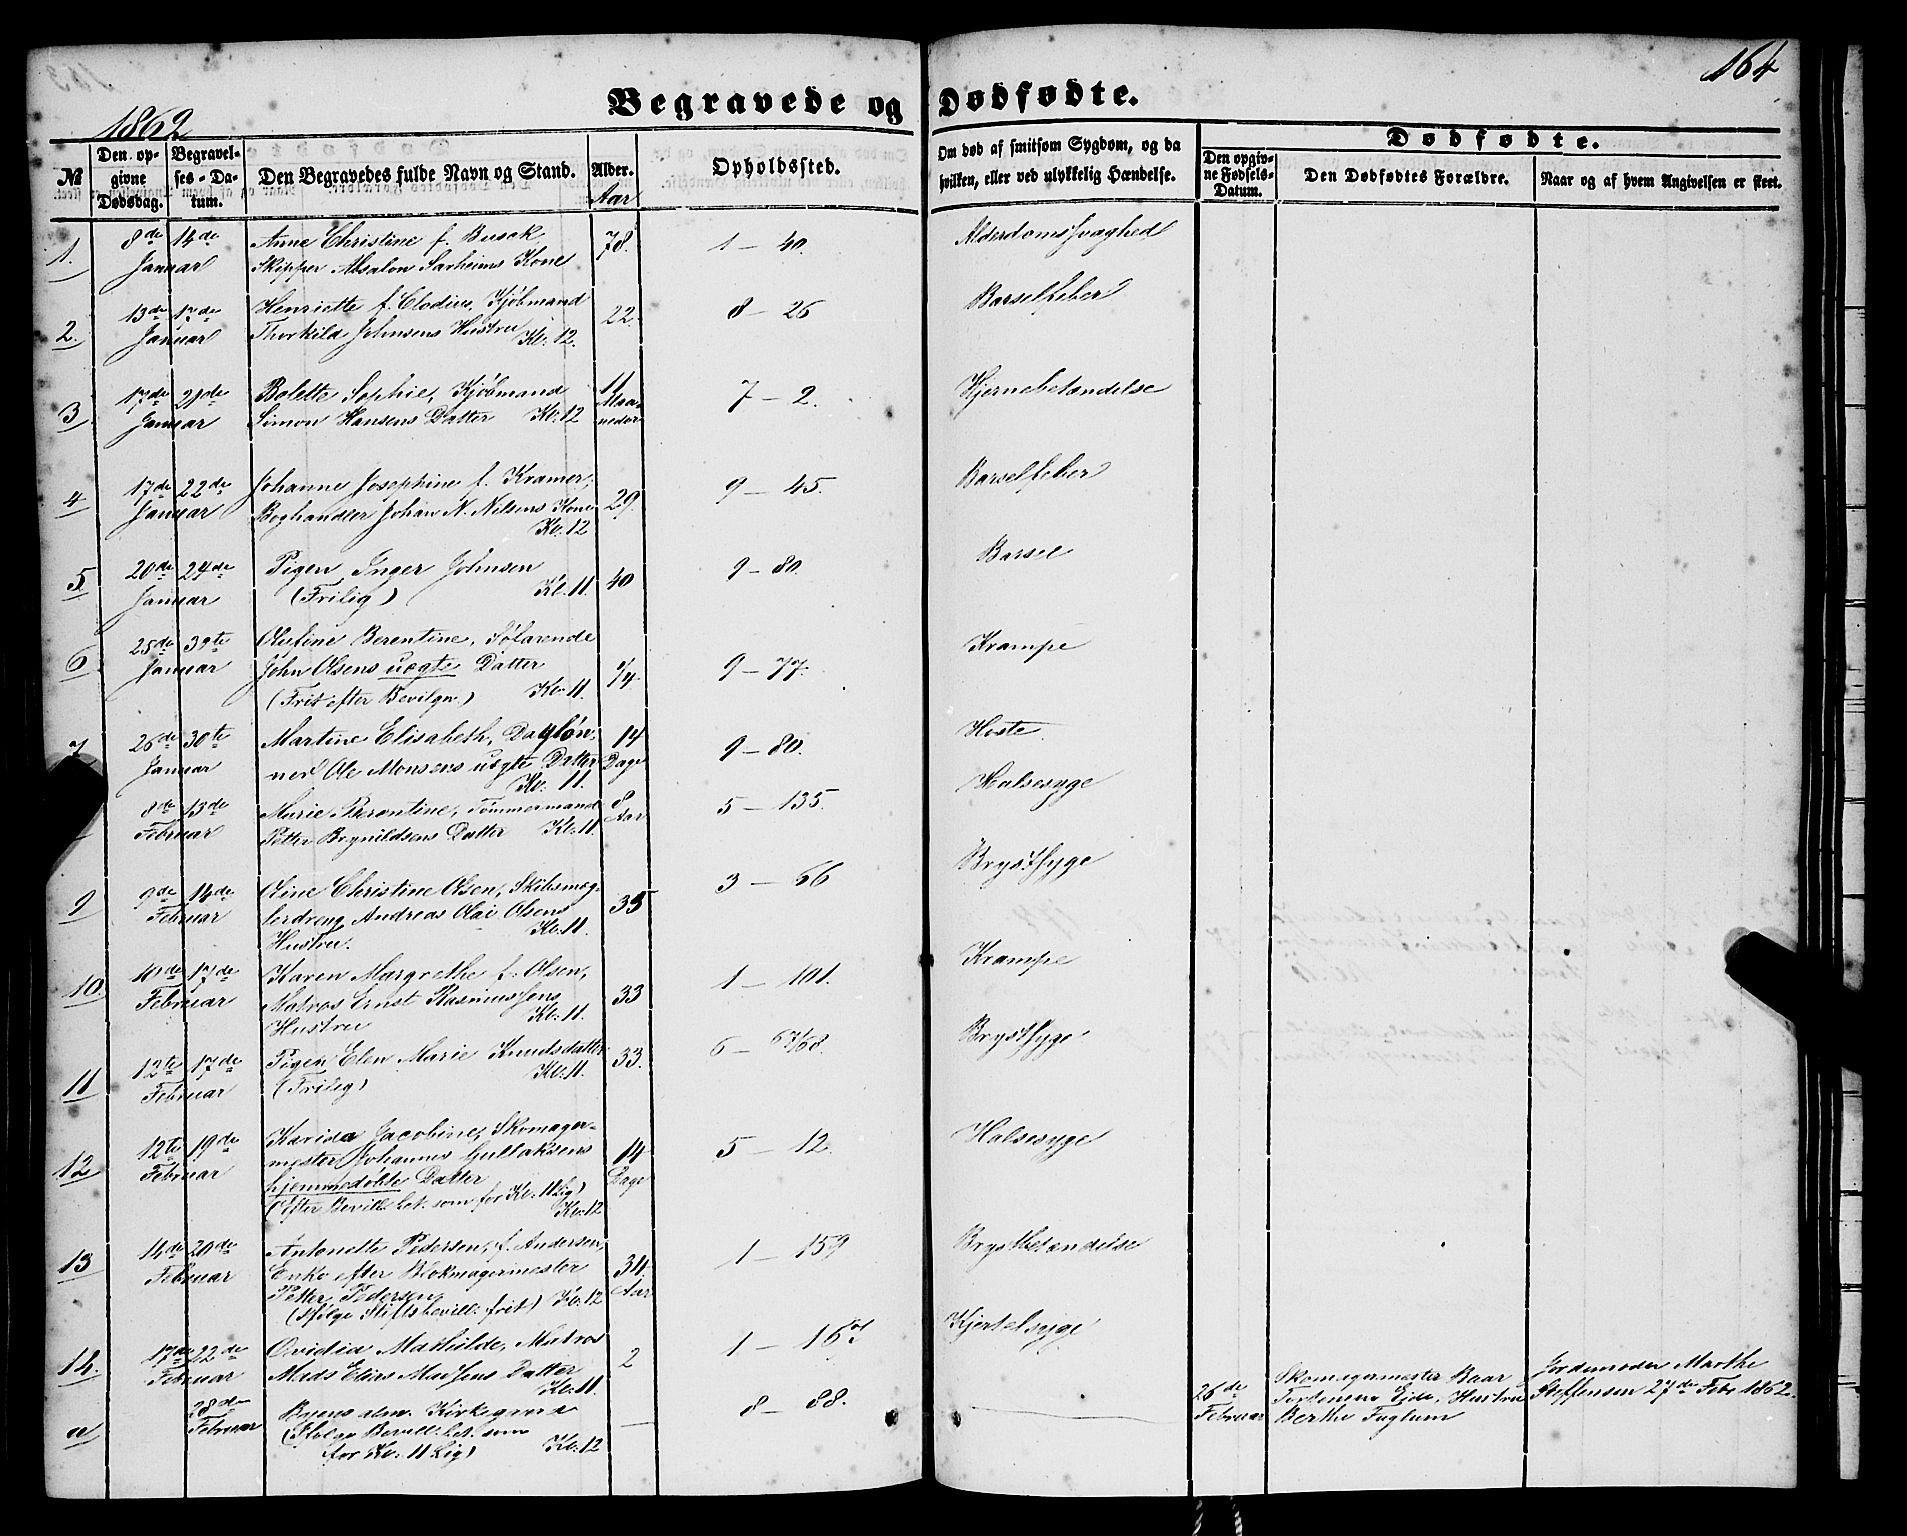 164
Begravede og Dødfødte.
1862
№
Den opgivne Dødsdag.
Begravelses-Datum.
Den Begravedes fulde Navn og Stand.
Alder. Aar
Opholdssted.
Om død af smitsom Sygdom, og da hvilken, eller ved ulykkelig Hændelse.
Dødfødte.
Den opgivne Fødsels-Datum.
Den Dødfødtes Forældre.
Naar og af hvem Angivelsen er skeet.
1. 8de Januar 14de Anne Christine f. Busck 78. 1 – 40. Alderdomssvaghed
Skipper Absalon Sarheims Kone
2. 13de Januar 17de Henriette f. Clodius, Kjøbmand 22. 8 – 26 Barselfeber
Thorkild Johnsens Hustru Kl. 12.
3 17de Januar 21de Bolette Sophie, Kjøbmand 11 Maaneder 7 – 2. Hjernebetændelse
Simon Hansens Datter Kl: 12
4 17de Januar 22de Johanne Josephine f. Kramer, 29. 9 – 45. Barselfeber
Boghandler Johan N. Nilsens Kone
Kl. 12
5 20de Januar 24de Pigen Inger Johnsen 40 9 – 80. Barsel
(Frilig) Kl. 11.
6 25de Januar 30te Olufine Berentine, Søfarende 1/4 9 – 77. Krampe
John Olsens uægte Datter
(Frit efter Bevilgn.) Kl. 11.
7 26de Januar 30te Martine Elisabeth, Dagløn- 14 Dage 9 – 80. Hoste
ner Ole Monsens uægte Datter
Kl. 11.
8de Februar 13de Marie Berentine, Tømmermand 8 Aar 5 – 135. Halsesyge
Petter Brynildsens Datter Kl. 11.
9 9de Februar 14de Oline Christine Olsen, Skibsmæg- 35 3 – 66 Brystsyge
lerdreng Andreas Olai Olsens
Hustru. Kl. 11.
10. 10de Februar 17de Karen Margrethe f. Olsen, 33 1 – 101. Krampe
Matros Ernst Rasmussens
Hustru Kl. 11.
11 12te Februar 17de Pigen Elen Marie Knudsdatter 33. 6 – 67/68. Brystsyge
(Frilig) Kl. 11.
12 12te Februar 19de Karida Jacobine, Skomager- 14 Dage 5 – 12. Halsesyge
mester Johannes Gullaksens
hjemmedøbte Datter
(Efter Bevill. bet. som for Kl. 11 Lig) Kl. 12
13 14de Februar 20de Antonette Pedersen, f. Andersen, 34. Aar 1 – 159 Brystbetændelse
Enke efter Blokmagermester
Petter Pedersen
(Ifølge Stiftsbevill. frit) Kl. 12
14. 17de Februar 22de Ovidia Mathilde, Matros 2 1 – 16 Kjertelsyge
Mads Elias Madsens Datter
Kl. 11.
a 28de Februar Byens alm. Kirkegaard — 8 – 88.
(Ifølge Bevill. bet. som
for Kl. 11 Lig) Kl. 12
26de Februar
Skomagermester Baar
Tostensen Eide, Hustru
Berthe Fuglum
Jordemoder Marthe
Steffensen 27de Febr. 1862.